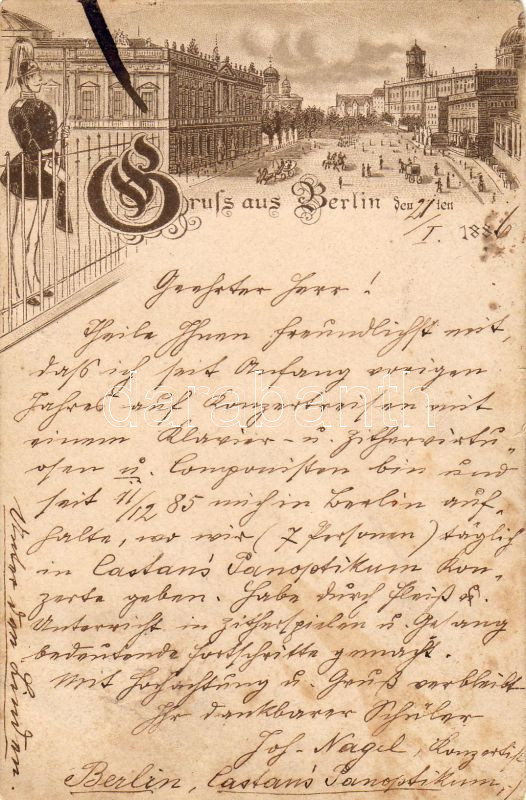 Gruss aus Berlin den 21ten
/I. 1886
Geehrter Herr!
Theile Ihnen freundlichst mit,
dass ich seit Anfang vorigen
Jahres auf Konzertreisen mit
einem Klavier- u. Zithervirtu-
osen u. Componisten bin und
seit 11/12 85 mich in Berlin auf-
halte, wo wir (7 Personen) täglich
in Castan's Panoptikum Kon-
zerte geben. Habe durch Fleiß u.
Unterricht in Zitherspielen u. Gesang
bedeutende Fortschritte gemacht.
Mit Hochachtung u. Gruß verbleibt
Ihr dankbarer Schüler
Joh. Nagel, Konzertist
Berlin, Castan's Panoptikum,
Unter den Linden.
darabanth